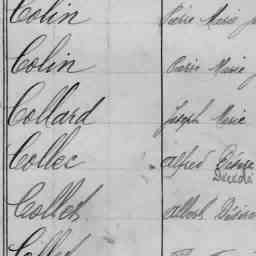 Colin Pierre Marie
Colin Pierre Marie
Collard Joseph Marie
Collec Alfred Pierre
Collet Albert Désiré